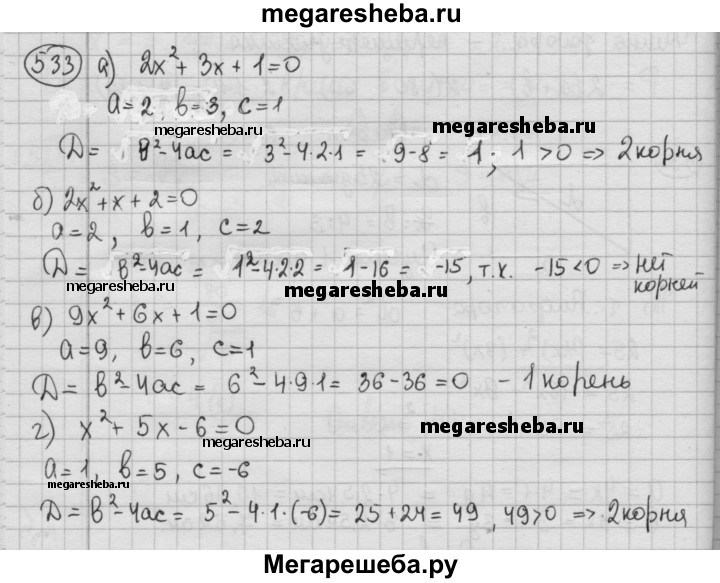 megaresheba.ru
533 а) 2x² + 3x + 1 = 0
a = 2, в = 3, c = 1
megaresheba.ru megaresheba.ru
Д = в² - 4ac = 3² - 4·2·1 = 9 - 8 = 1; 1 > 0 => 2 корня
б) 2x² + x + 2 = 0
a = 2, в = 1, c = 2
Д = в² - 4ac = 1² - 4·2·2 = 1 - 16 = -15, т.к. -15 < 0 => нет корней
megaresheba.ru megaresheba.ru
в) 9x² + 6x + 1 = 0
a = 9, в = 6, c = 1
megaresheba.ru
Д = в² - 4ac = 6² - 4·9·1 = 36 - 36 = 0 - 1 корень
г) x² + 5x - 6 = 0
megaresheba.ru megaresheba.ru
a = 1, в = 5, c = -6
megaresheba.ru
Д = в² - 4ac = 5² - 4·1·(-6) = 25 + 24 = 49, 49 > 0 => 2 корня
Мегарешеба.ру